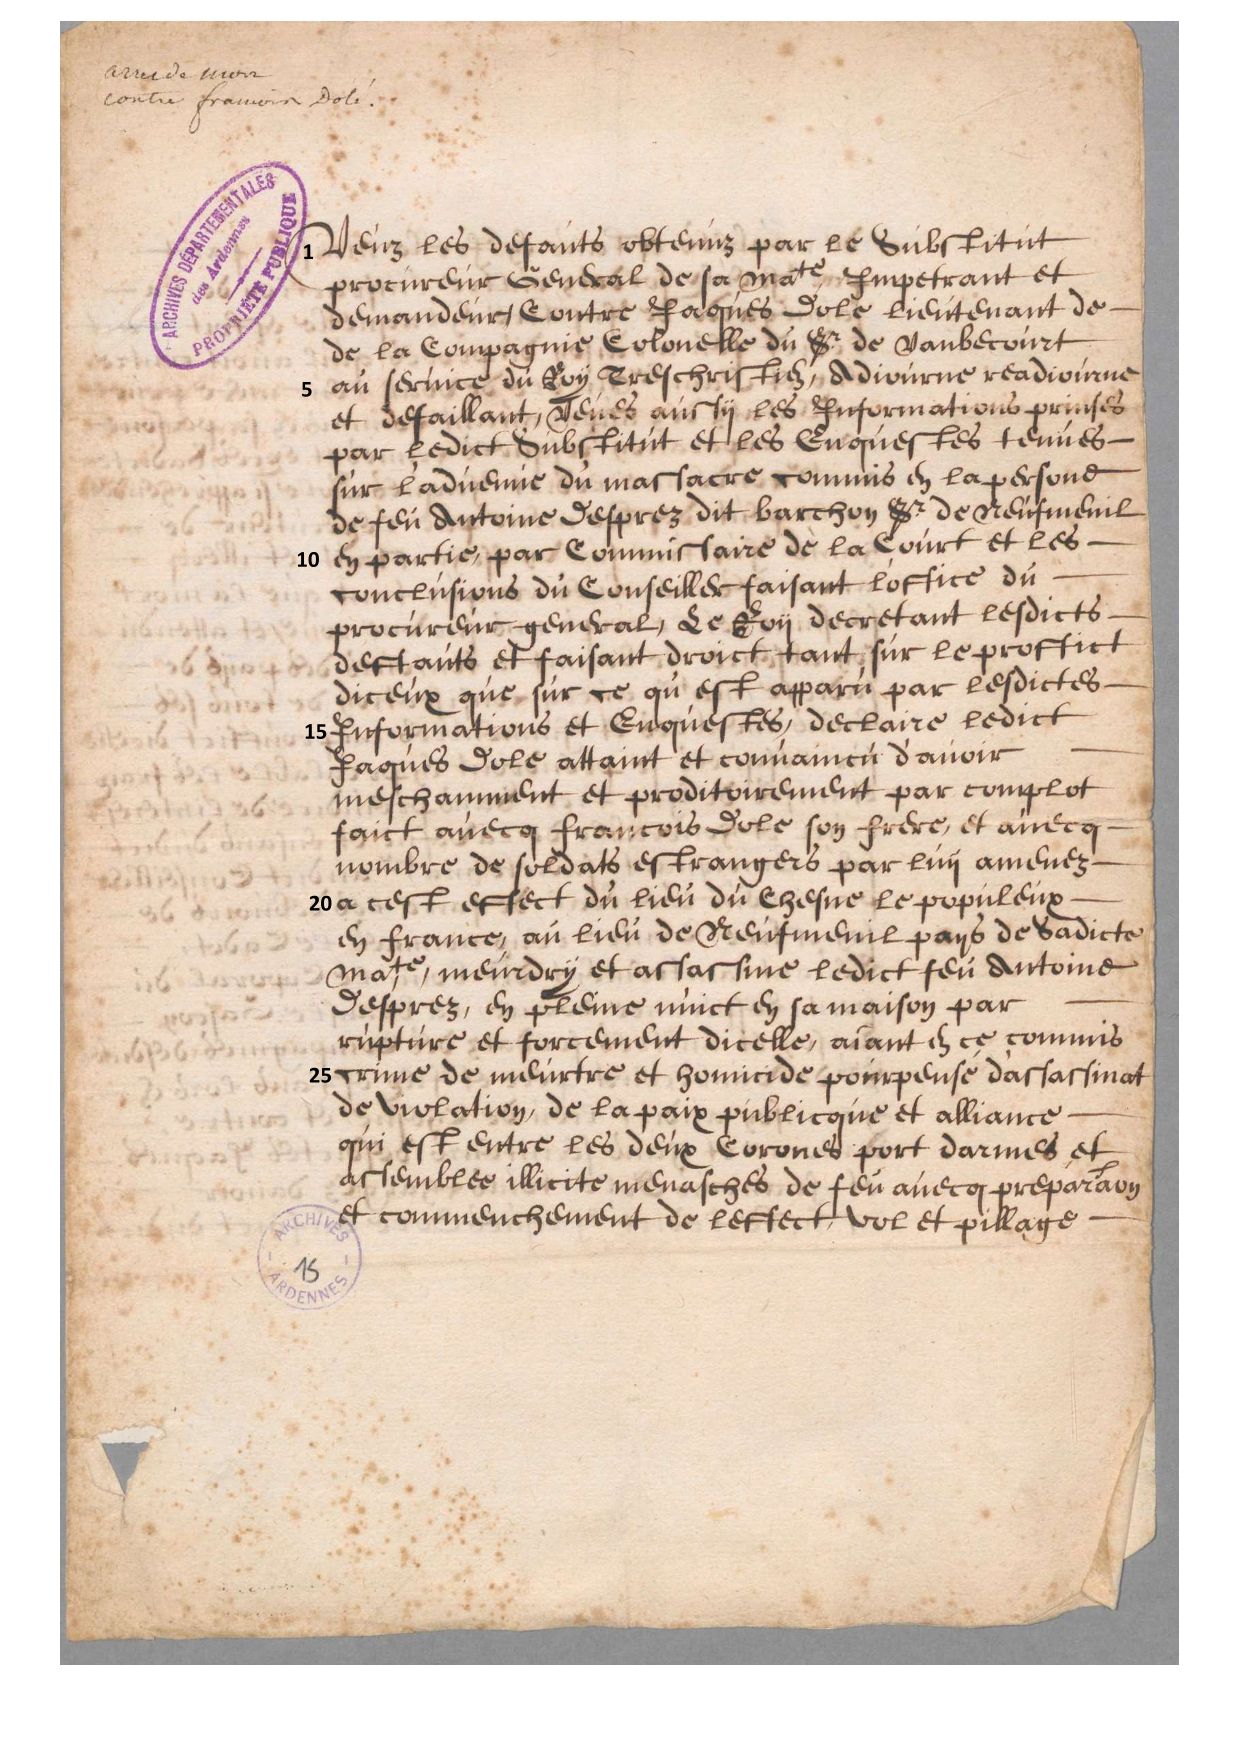 arrest de mort
contre francois Dolé.
ARCHIVES DÉPARTEMENTALES
des Ardennes
PROPRIÉTÉ PUBLIQUE
1 Veuz les defauts obtenuz par le Substitut
procureur General de sa Ma.te, Impetrant et
demandeur, Contre Jaques Dole lieutenant de
de la Compagnie Colonelle du Sr. de Vanbecourt
5 au seruice du Roy Treschristien, Adiourne readiourne
et defaillant, Veues aussy les Informations prinses
par ledict Substitut et les Enquestes tenues
sur laduenue du massacre commis en la persone
de feu Antoine Desprez dit barchon Sr. de Neufmenil
10 en partie, par Commissaire de la Court et les
conclusions du Conseiller faisant loffice du
procureur general, Le Roy decretant lesdicts
deffauts et faisant droict tant sur le proffict
diceux que sur ce qu est apparu par lesdictes
15 Informations et Enquestes, declaire ledict
Jaques Dole attaint et conuaincu d'auoir
meschamment et proditoirement par complot
faict auecq francois Dole son frere, et auecq
nombre de soldats estrangers par luy amenez
20 a cest effect du lieu du Chesne le populeux
en france, au lieu de Neufmenil pays de sadicte
Ma.te, meurdry et assassine ledict feu Antoine
Desprez, en pleine nuict en sa maison par
rupture et forcement dicelle, aiant en ce commis
25 crime de meurtre et homicide pourpensé d'assassinat
de violation, de la paix publicque et alliance
qui est entre les deux Corones port darmes et
assemblee illicite menasches de feu auecq preparaon
et commenchement de leffect, vol et pillage
ARCHIVES
15
ARDENNES